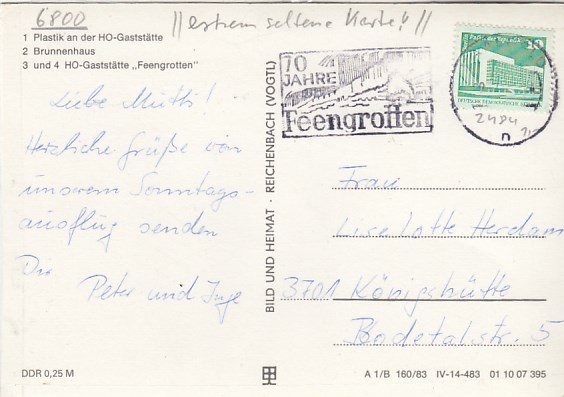 6800
// extrem seltene Karte! //
1 Plastik an der HO-Gaststätte
2 Brunnenhaus
3 und 4 HO-Gaststätte „Feengrotten"
70
JAHRE
Feengrotten
10
2484
n
Liebe Mutti!
Herzliche Grüße von
unserem Sonntags-
ausflug senden
Dir
Peter und Inge
BILD UND HEIMAT · REICHENBACH (VOGTL)
Frau
Liselotte Herdam
3701 Königshütte
Bodetalstr. 5
DDR 0,25 M
A 1/B 160/83 IV-14-483 01 10 07 395